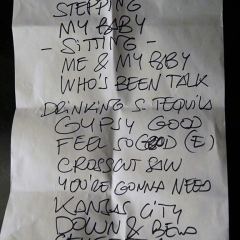 STEPPING
MY BABY
- SITTING -
ME & MY BABY
WHO'S BEEN TALK
DRINKING S TEQUILA
GYPSY GOOD
FEEL SO GOOD (E)
CROSSCUT SAW
YOU'RE GONNA NEED
KANSAS CITY
DOWN &